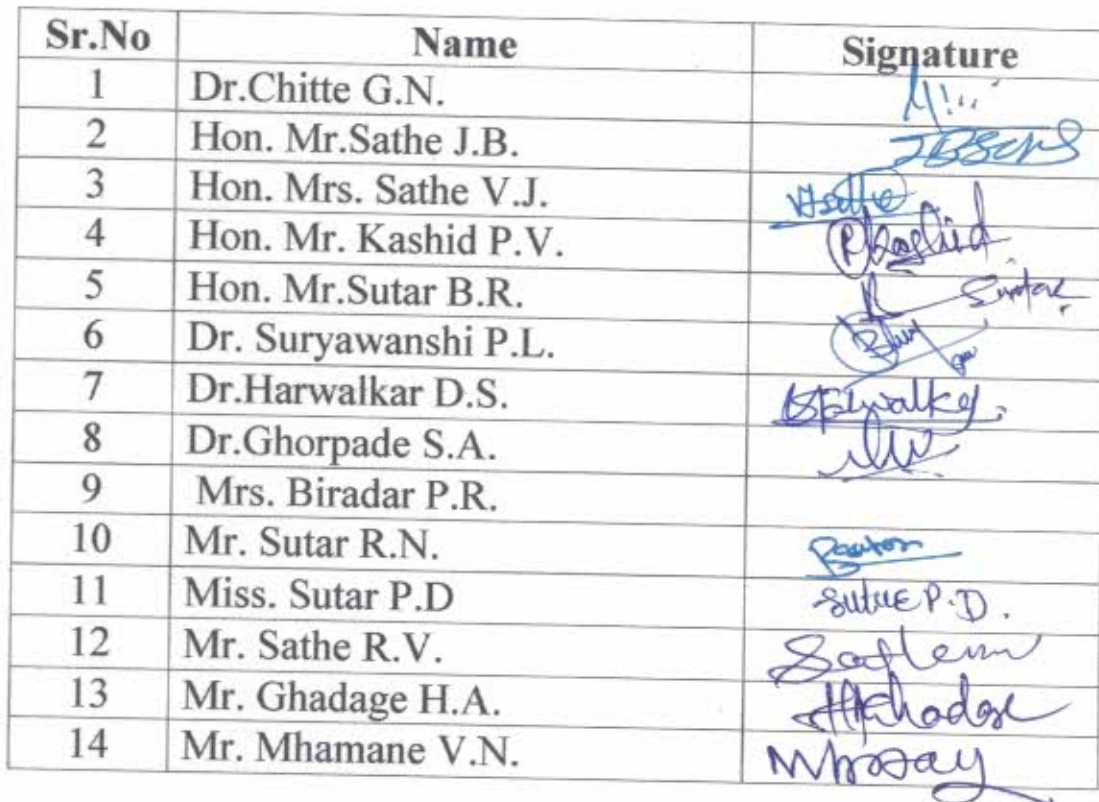 Sr.No Name Signature
1 Dr.Chitte G.N.
2 Hon. Mr.Sathe J.B.
3 Hon. Mrs. Sathe V.J. VJSathe
4 Hon. Mr. Kashid P.V. PKashid
5 Hon. Mr.Sutar B.R. Sutar
6 Dr. Suryawanshi P.L.
7 Dr.Harwalkar D.S.
8 Dr.Ghorpade S.A.
9 Mrs. Biradar P.R.
10 Mr. Sutar R.N.
11 Miss. Sutar P.D Sutar P.D.
12 Mr. Sathe R.V.
13 Mr. Ghadage H.A. HAGhadage
14 Mr. Mhamane V.N.